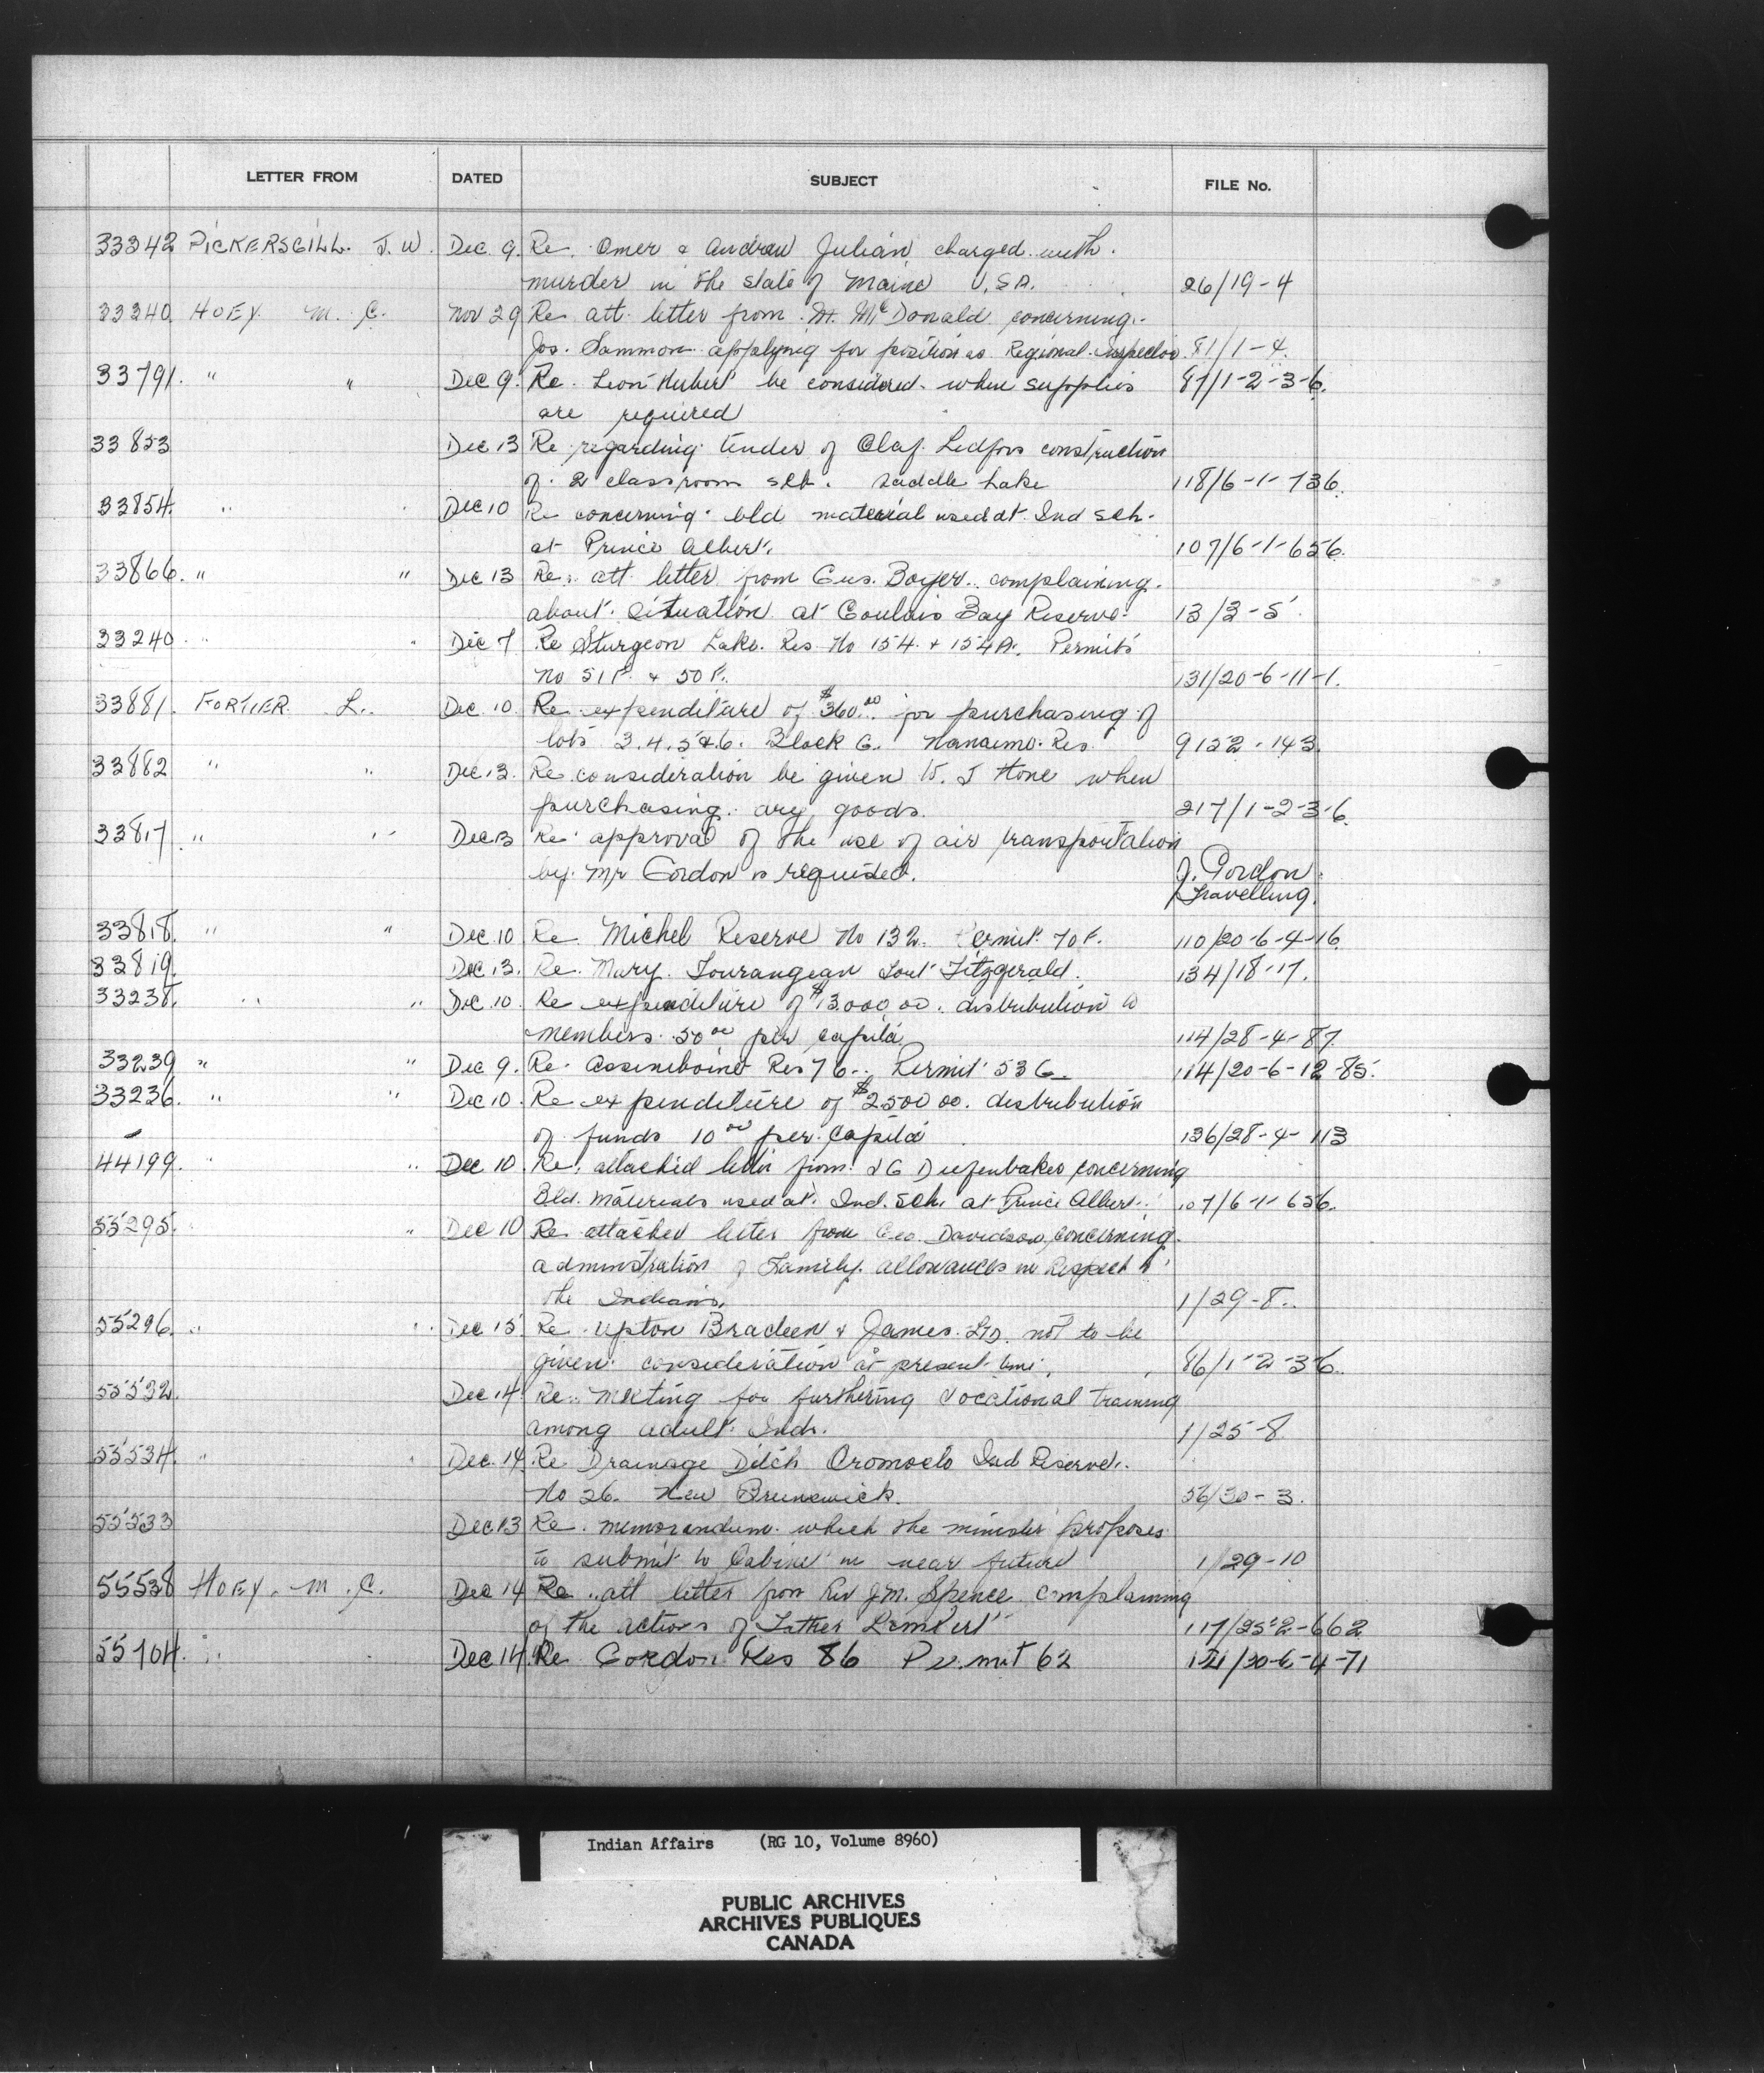 LETTER FROM DATED SUBJECT FILE No.
33342 PICKERSGILL. J. W. Dec. 9. Re. Omer & Andrew Julian charged with
murder in the state of Maine U.S.A. 26/19-4
33340. HOEY M. C. Nov 29 Re att. letter from Mc Donald concerning
Jos. Sammon applying for position as Regional Inspector. 81/1-4.
33791. " " Dec 9. Re. Leon Hubert be considered when supplies 87/1-2-3-6.
are required
33853 Dec 13 Re regarding tender of Olaf Ledfors construction
of 2 classroom sch. Saddle Lake 118/6-1-736.
33854. " Dec 10 Re concerning bld material used at Ind sch.
at Prince Albert. 107/6-1-656.
33866. " " Dec 13 Re. att letter from Gus. Boyer complaining
about situation at Goulais Bay Reserve. 13/3-5
33240. " " Dec 7 Re Sturgeon Lake. Res No 154 + 154A. Permits
No 51F. & 50F. 131/20-6-11-1.
33881. FORTIER L. Dec. 10. Re expenditure of $360.00 for purchasing of
lots 3.4.5&6. Block G. Nanaimo. Res. 9152-143.
33882 " " Dec 13. Re consideration be given W. J Hone when
purchasing any goods. 217/1-2-3-6.
33817. " " Dec 13 Re approval of the use of air transportation
by Mr Gordon is required. J. Gordon
Travelling.
33818. " " Dec. 10 Re. Michel Reserve No 132. Permit 70F. 110/20-6-4-16.
33819. Dec. 13. Re. Mary Tourangeau Fort Fitzgerald. 134/18-17.
33238. " " Dec. 10. Re expenditure of $13.000.00. distribution to
members. 50 00 per capita 114/28-4-87.
33239 " " Dec 9. Re. Assiniboine Res 76. Permit 53G. 114/20-6-12-85.
33236. " " Dec 10. Re expenditure of $2500 00. distribution
of funds 10 00 per. capita 136/28-4-113
44199. " " Dec 10. Re. attached letter from J G Diefenbaker concerning
Bld. materials used at Ind. Sch. at Prince Albert. 107/6-1-656.
55295. " Dec 10 Re attached letter from Geo. Davidson, concerning
adminstration of Family allowances in respect to
the Indians. 1/29-8..
55296. " " Dec 15 Re Upton Bradeen & James. LTD. not to be
given consideration at present time. 86/1-2-3-6.
55532. Dec 14 Re. meeting for furthering vocational training
among adult Inds. 1/25-8
55534. " " Dec. 14 Re Drainage Ditch Oromocto Ind Reserve.
No 26. New Brunswick. 56/30-3.
55533 Dec 13 Re. memorandum which the minister proposes
to submit to Cabinet in near future 1/29-10
55538 HOEY. M. C. Dec 14 Re att letter from Rev J.M. Spence complaining
of the actions of Father 117/25-2-662
55704. " Dec 14. Re Gordon Res 86 Permit 62 /20-6-4-71
Indian Affairs (RG 10, Volume 8960)
PUBLIC ARCHIVES
ARCHIVES PUBLIQUES
CANADA